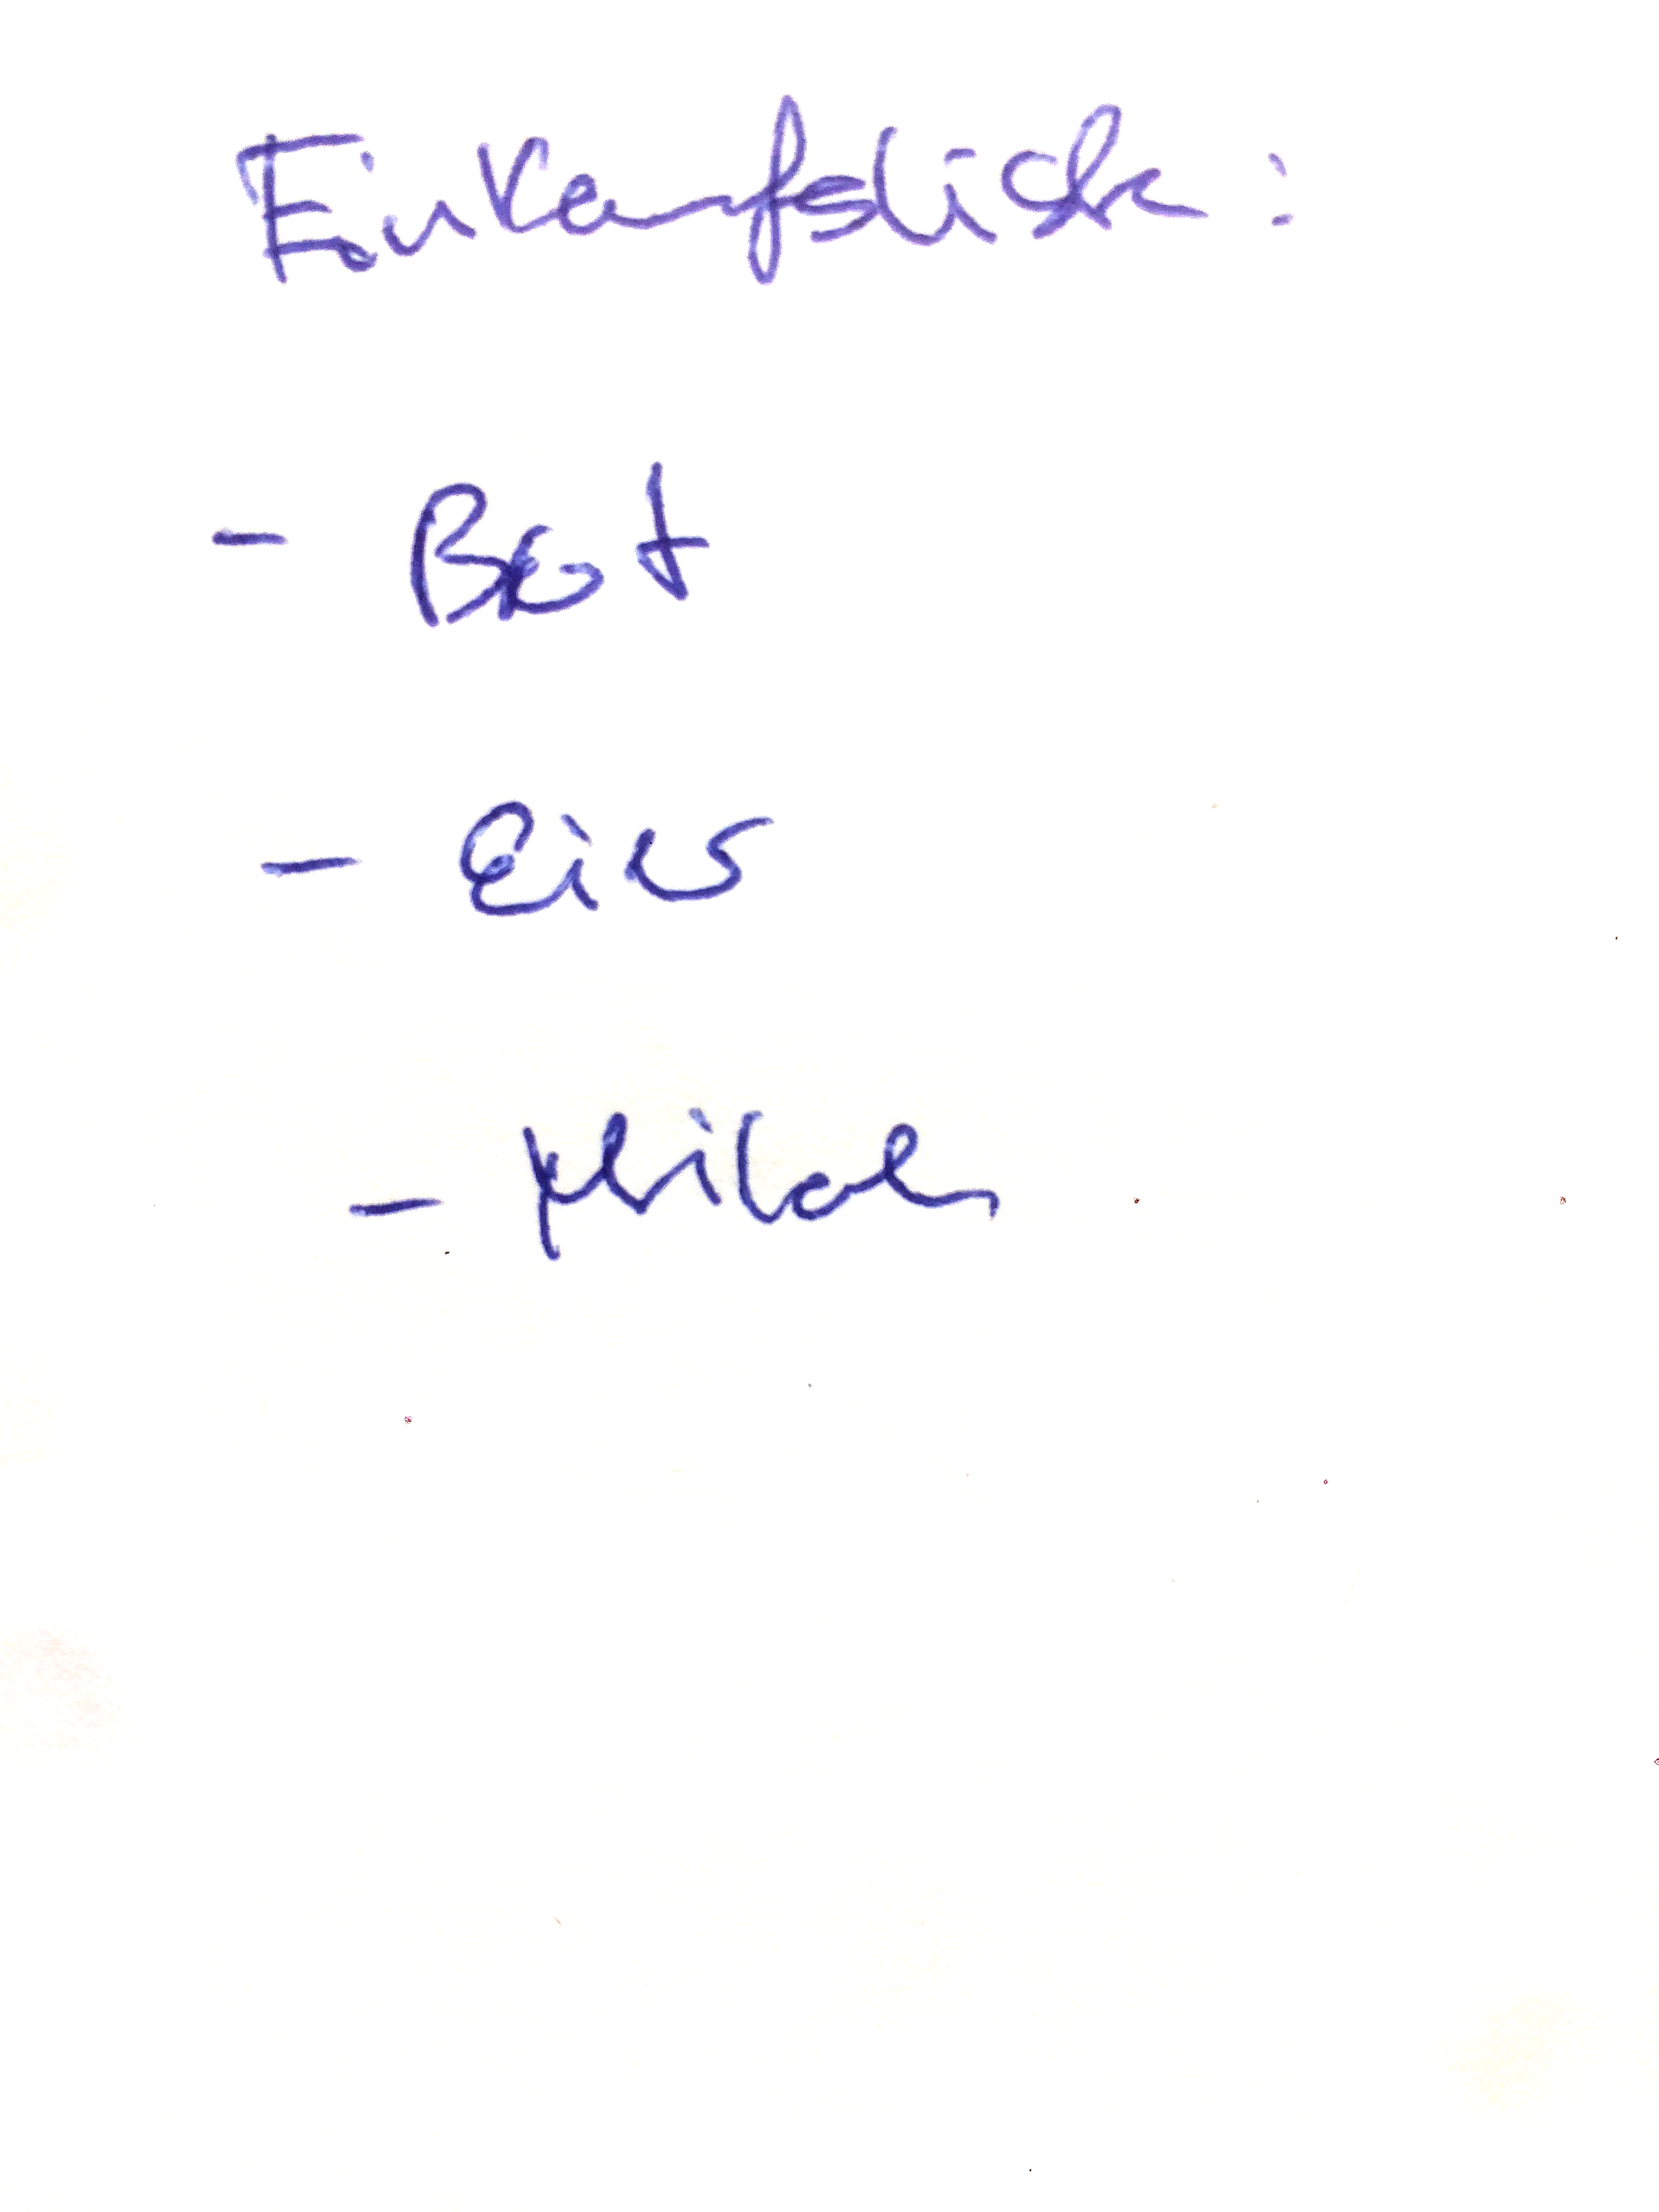 Einkaufsliste:
- Brot
- Eier
- Milch